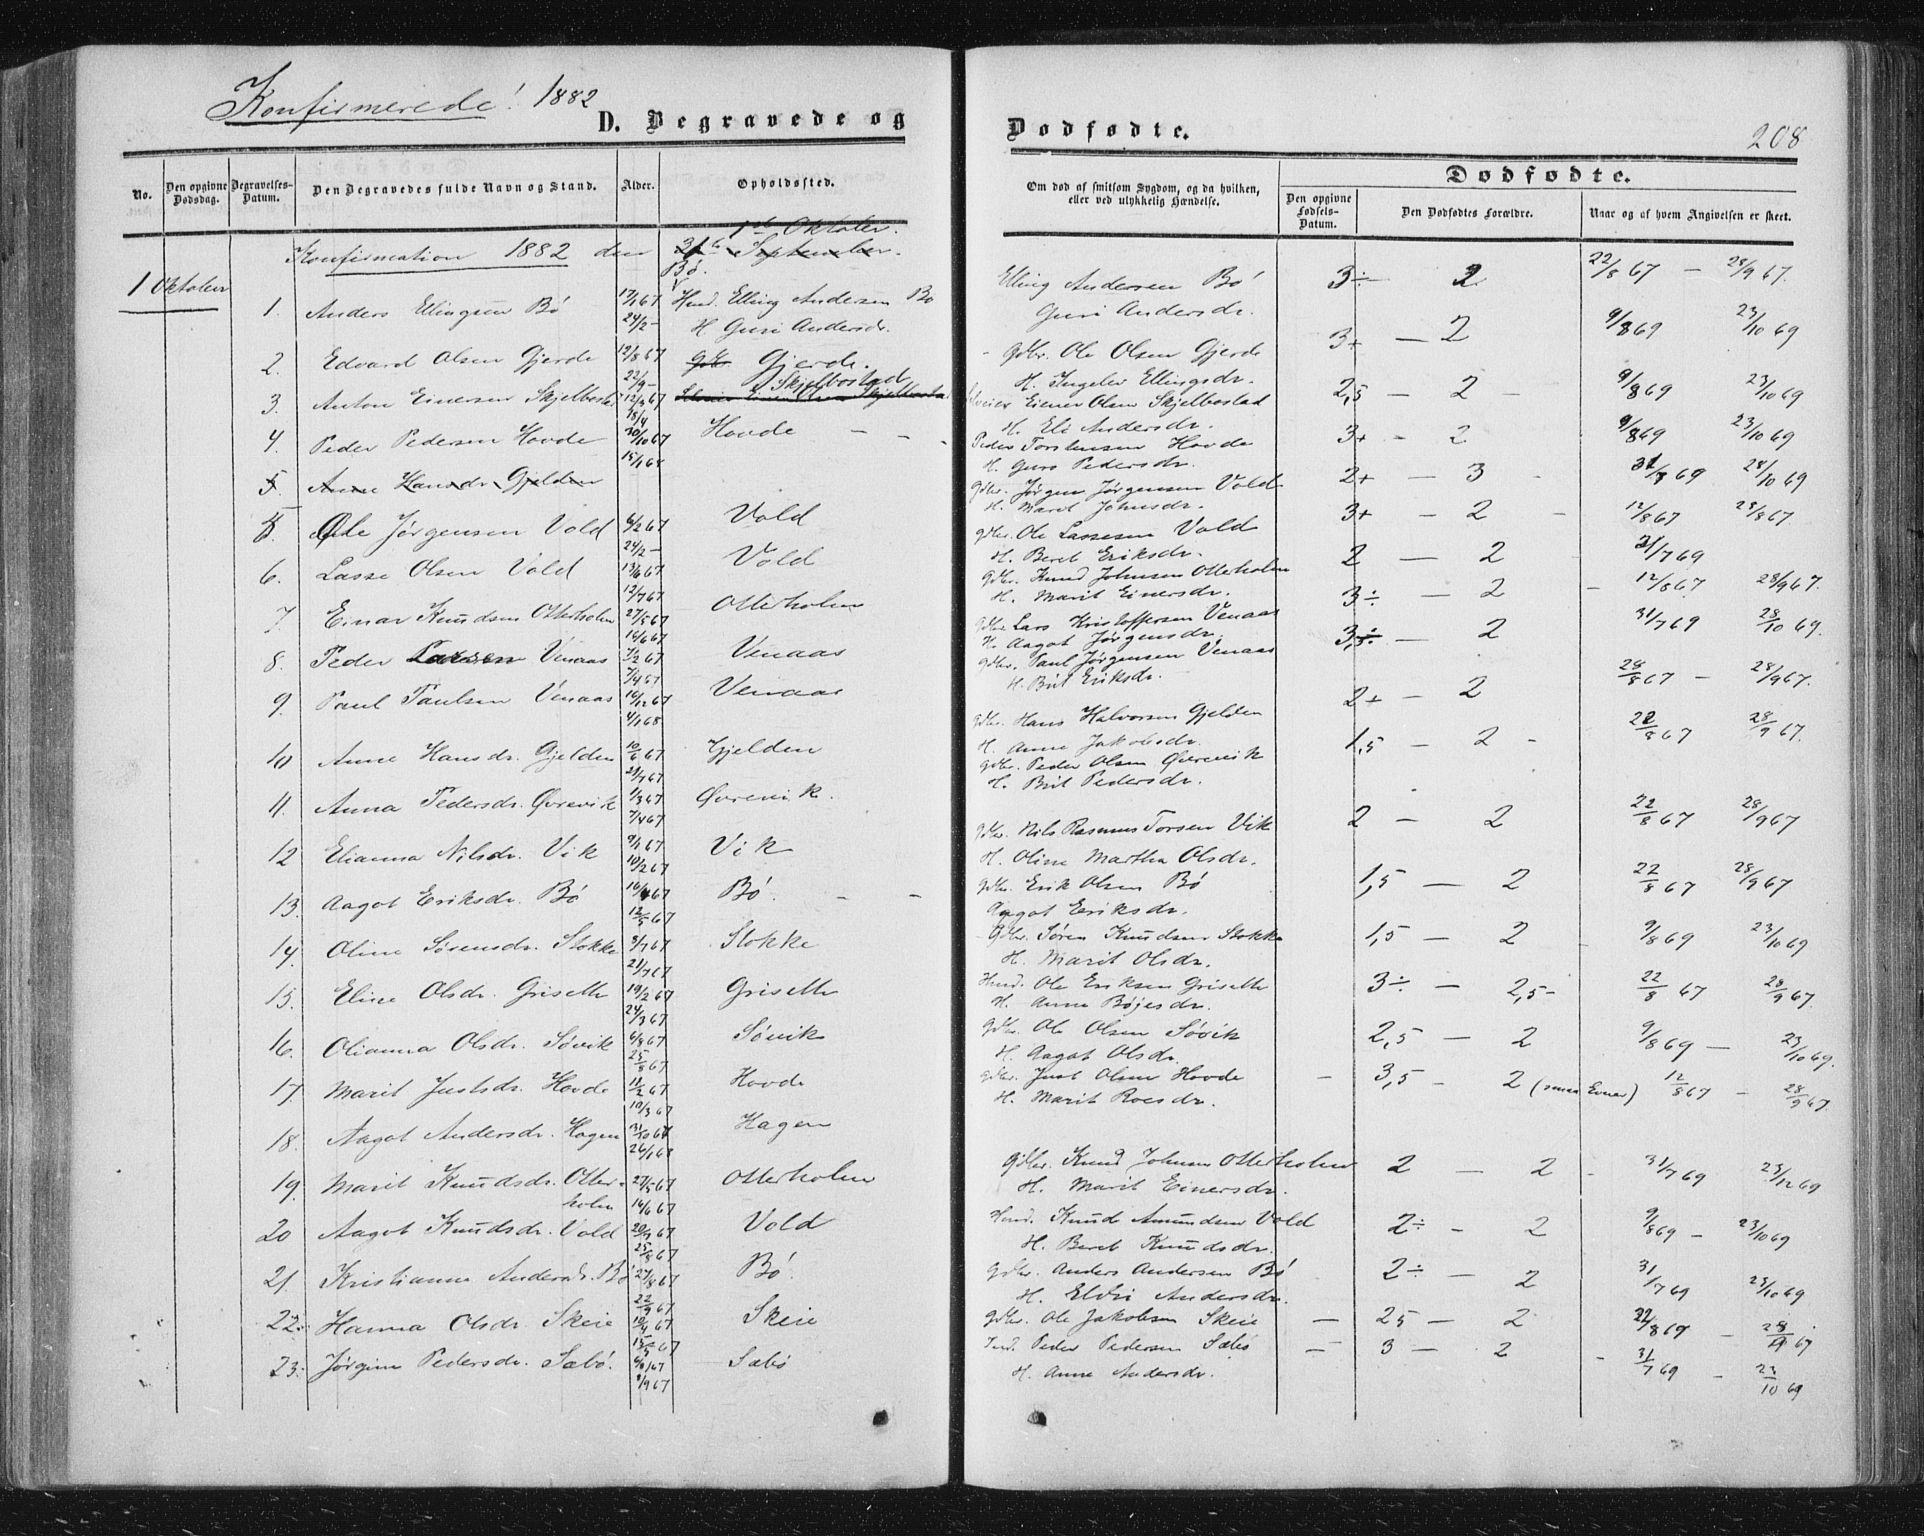 Konfirmerede! 1882
D. Begravede og
No.
Den opgivne Dødsdag.
Begravelses-Datum.
Den Begravedes fulde Navn og Stand.
Alder.
Opholdssted.
Konfirmation 1882 den 1ste Oktober.
Bø.
1 Oktober
1. Anders Ellingsen Bø 17/1 67 Huusd. Elling Andersen Bø
24/2 – H Guri Andersdr.
2. Edvard Olsen Gjerde 12/8 67 Gjerde.
22/9 –
3. Anton Einersen Skjelbostad 12/3 67 Skjelbostad
18/4
4. Peder Pedersen Hovde 30/10 67 Hovde – – –
15/1 68
5. Anne Hansdr. Gjelden
5 Ole Jørgensen Vold 6/2 67 Vold
24/2 –
6. Lasse Olsen Vold 13/6 67 Vold
12/7 67
7. Einar Knudsen Otterholm 27/5 67 Otterholm
16/6 67
8. Peder Larsen Venaas 7/2 67 Venaas
7/4 67
9. Paul Paulsen Venaas 16/12 67 Venaas
4/1 68
10 Anne Hansdr. Gjelden 10/6 67 Gjelden
21/7 67
11. Anna Pedersdr. Øvrevik 1/3 67 Øvrevik.
7/4 67
12 Elianna Nilsdr. Vik 9/1 67 Vik
10/2 67
13. Aagot Eriksdr. Bø 16/4 67 Bø. – –
12/5 67
14. Oline Sørensdr. Stokke 3/7 67 Stokke
21/7 67
15. Eline Olsdr. Grisetle 19/2 67 Grisetle
24/3 67
16. Olianna Olsdr. Søvik 6/8 67 Søvik
25/8 67
17. Marit Justsdr. Hovde 11/2 67 Hovde
10/3 67
18. Aagot Andersdr. Hagen 31/10 67 Hagen
26/1 68
19. Marit Knudsdr. Otter- 27/5 67 Otterholm
holm 16/6 67
20 Aagot Knudsdr. Vold 20/7 67 Vold
25/8 67
21. Kristianne Andersdr. Bø 27/8 67 Bø.
22/9 67
22: Hanna Olsdr Skeie 10/4 67 Skeie
15/5 67
23: Jørgine Pedersdr. Sæbø. 6/8 67 Sæbø
8/9 67
Dødfødte.
208
Om død af smitsom Sygdom, og da hvilken, eller ved ulykkelig Hændelse.
Dødfødte.
Den opgivne Fødsels-Datum.
Den Dødfødtes Forældre.
Naar og af hvem Angivelsen er skeet.
Elling Andersen Bø 3÷ 2 22/8 67 – 28/9 67.
Guri Andersdr.
Gdbr. Ole Olsen Gjerde 3+ – 2 9/8 69 23/10 69
H. Ingelev Ellingsdr.
Einer Olsen Skjelbostad 2,5 – 2 – 9/8 69 23/10 69
H. Eli Andersdr.
Peder Torstensen Hovde 3+ – 2 9/8 69 23/10 69
H. Guro Pedersdr.
Gdbr. Jørgen Jørgensen Vold 2+ – 3 31/8 69 28/10 69
H. Marit Johnsdr.
Gdbr. Ole Lassesen Vold 3+ – 2 – 12/8 67 28/8 67
H. Beret Eriksdr.
Gdbr. Knud Johnsen Otterholm 2 – 2 31/7 69
H. Marit Einersdr.
Gdbr Lars Kristoffersen Venaas 3÷ – 2 – 12/8 67 28/9 67.
H. Aagot Jørgensdr.
Gdbr. Paul Jørgensen Venaas 3÷ – 2 31/7 69 28/10 69.
H. Brit Eriksdr.
Gdbr. Hans Halvorsen Gjelden 2+ – 2 28/8 67 – 28/9 67.
H. Anne Jakobsdr.
Gdbr. Peder Olsen Øvrevik 1,5 – 2 – 22/8 67 28/9 67.
H. Brit Pedersdr.
Gdbr. Nils Rasmus Torsen Vik 2 – 2 22/8 67 28/9 67
H. Oline Martha Olsdr.
Gdbr. Erik Olsen Bø 1,5 – 2 22/8 67 28/9 67
Aagot Eriksdr.
Gdbr. Søren Knudsen Stokke 1,5 – 2 – 9/8 69 23/10 69
H. Marit Olsdr.
Huusd. Ole Eriksen Grisetle 3÷ – 2,5 – 22/8 67 28/9 67.
H. Anne Bøjesdr.
Gdbr. Ole Olsen Søvik 2,5 – 2 9/8 69 – 23/10 69.
H. Aagot Olsdr.
Gdbr. Just Olsen Hovde – 3,5 – 2 12/8 67 – 28/9 67.
H. Marit Roesdr.
Gdbr. Knud Johnsen Otterholm 2 – 2 – 31/7 69 23/12 69
H. Marit Einersdr.
Huusd. Knud Amundsen Vold 2÷ – 2 9/8 69 – 23/10 69
H. Beret Knudsdr.
Gdbr. Anders Andersen Bø 2÷ – 2 31/7 69 23/10 69
H. Eldri Andersdr.
Gdbr. Ole Jakobsen Skeie – 25 – 2 22/8 67 – 28/9 67
Ind. Peder Pedersen Sæbø – 3 – 2 – 31/7 69 – 23/10 69
H. Anne Andersdr.